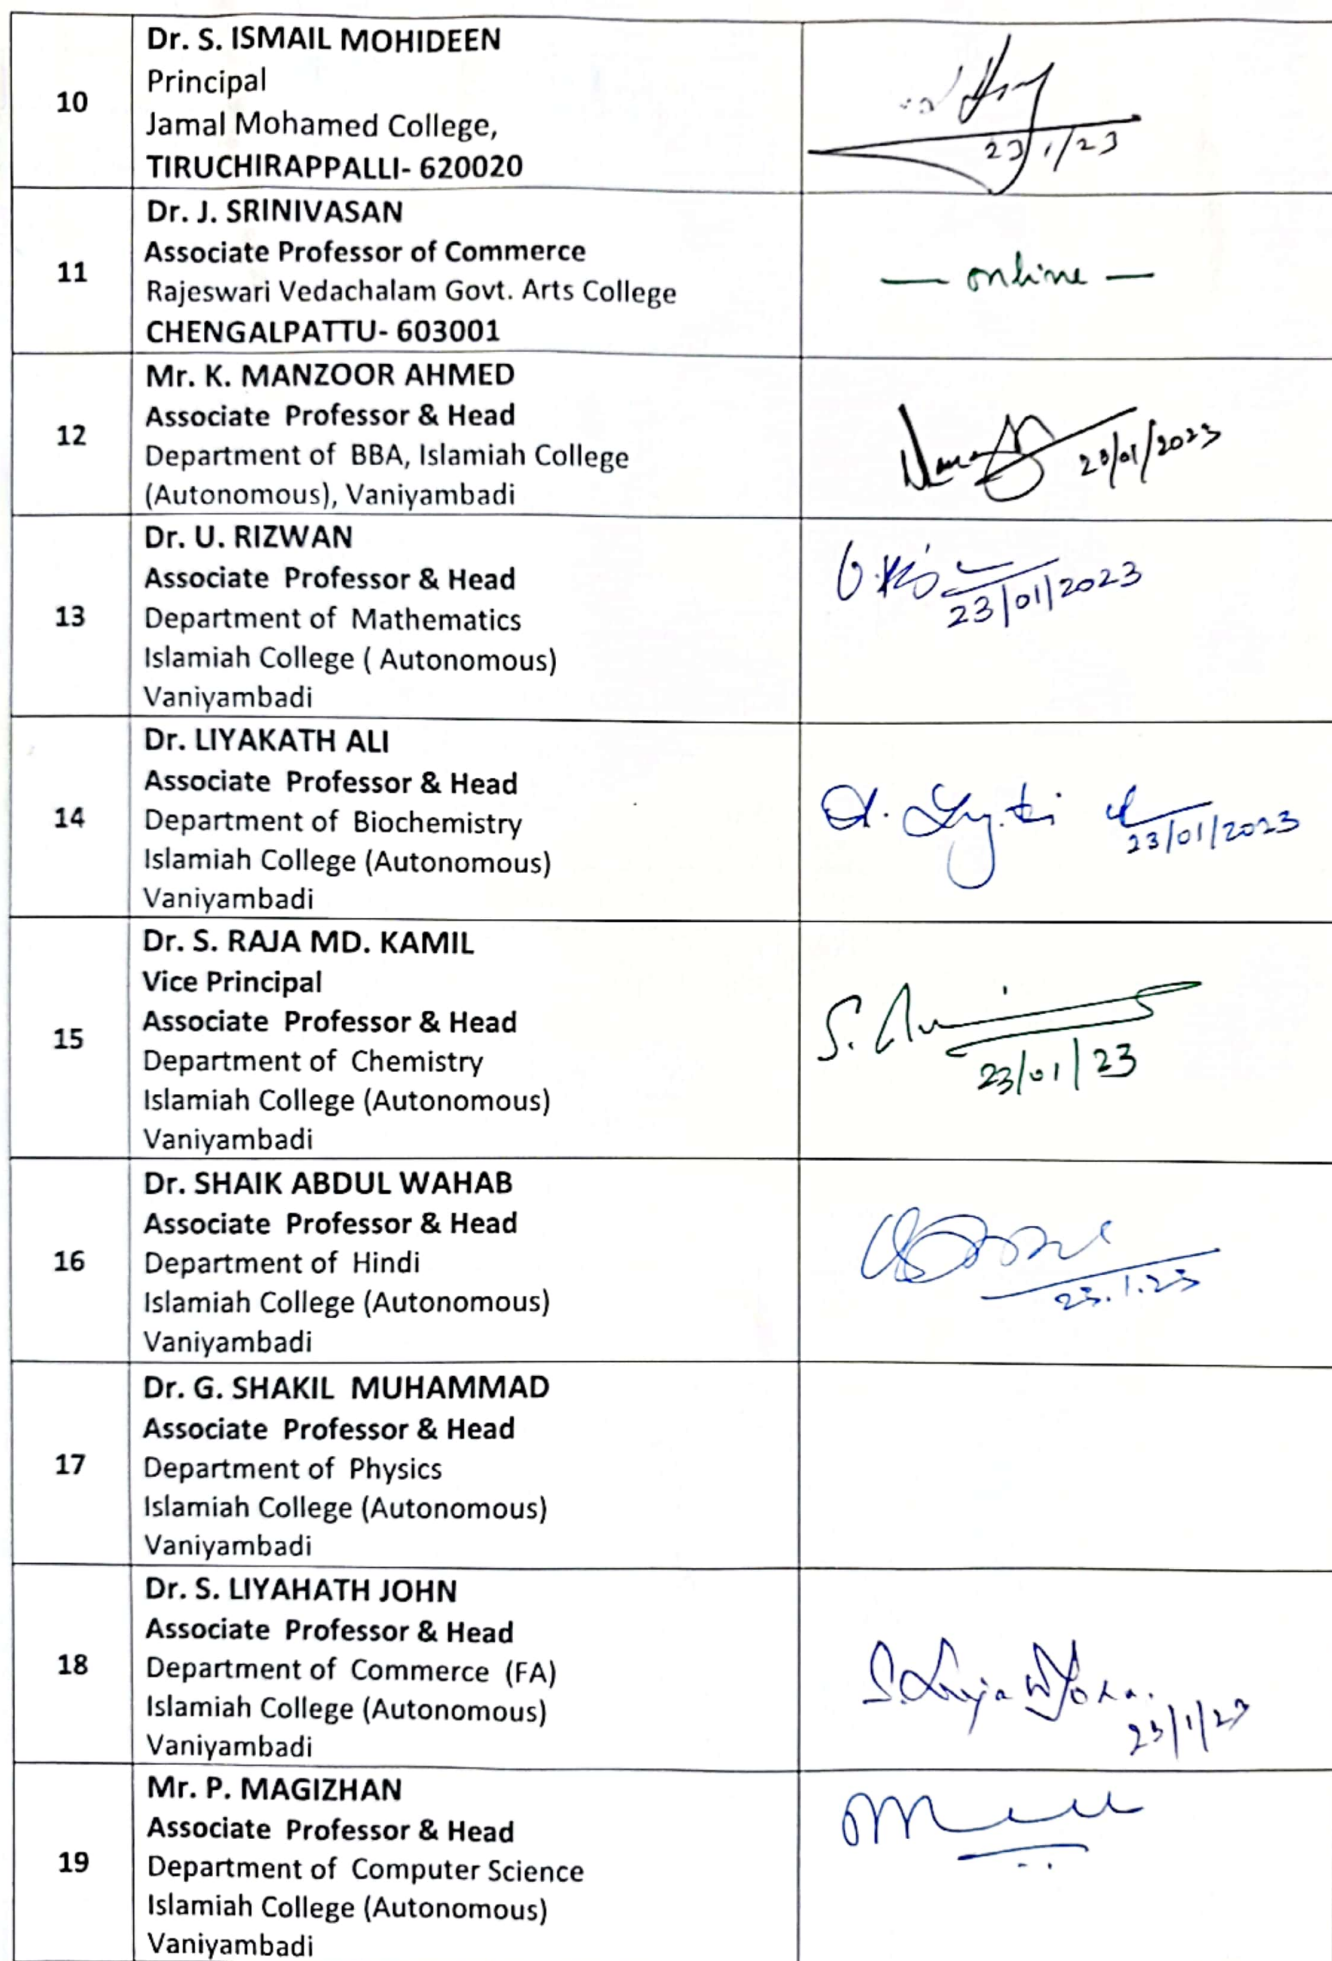 10
Dr. S. ISMAIL MOHIDEEN
Principal
Jamal Mohamed College,
TIRUCHIRAPPALLI- 620020
23/1/23
11
Dr. J. SRINIVASAN
Associate Professor of Commerce
Rajeswari Vedachalam Govt. Arts College
CHENGALPATTU- 603001
— online —
12
Mr. K. MANZOOR AHMED
Associate Professor & Head
Department of BBA, Islamiah College
(Autonomous), Vaniyambadi
23/01/2023
13
Dr. U. RIZWAN
Associate Professor & Head
Department of Mathematics
Islamiah College ( Autonomous)
Vaniyambadi
23/01/2023
14
Dr. LIYAKATH ALI
Associate Professor & Head
Department of Biochemistry
Islamiah College (Autonomous)
Vaniyambadi
23/01/2023
15
Dr. S. RAJA MD. KAMIL
Vice Principal
Associate Professor & Head
Department of Chemistry
Islamiah College (Autonomous)
Vaniyambadi
23/01/23
16
Dr. SHAIK ABDUL WAHAB
Associate Professor & Head
Department of Hindi
Islamiah College (Autonomous)
Vaniyambadi
23.1.23
17
Dr. G. SHAKIL MUHAMMAD
Associate Professor & Head
Department of Physics
Islamiah College (Autonomous)
Vaniyambadi
18
Dr. S. LIYAHATH JOHN
Associate Professor & Head
Department of Commerce (FA)
Islamiah College (Autonomous)
Vaniyambadi
23/1/23
19
Mr. P. MAGIZHAN
Associate Professor & Head
Department of Computer Science
Islamiah College (Autonomous)
Vaniyambadi